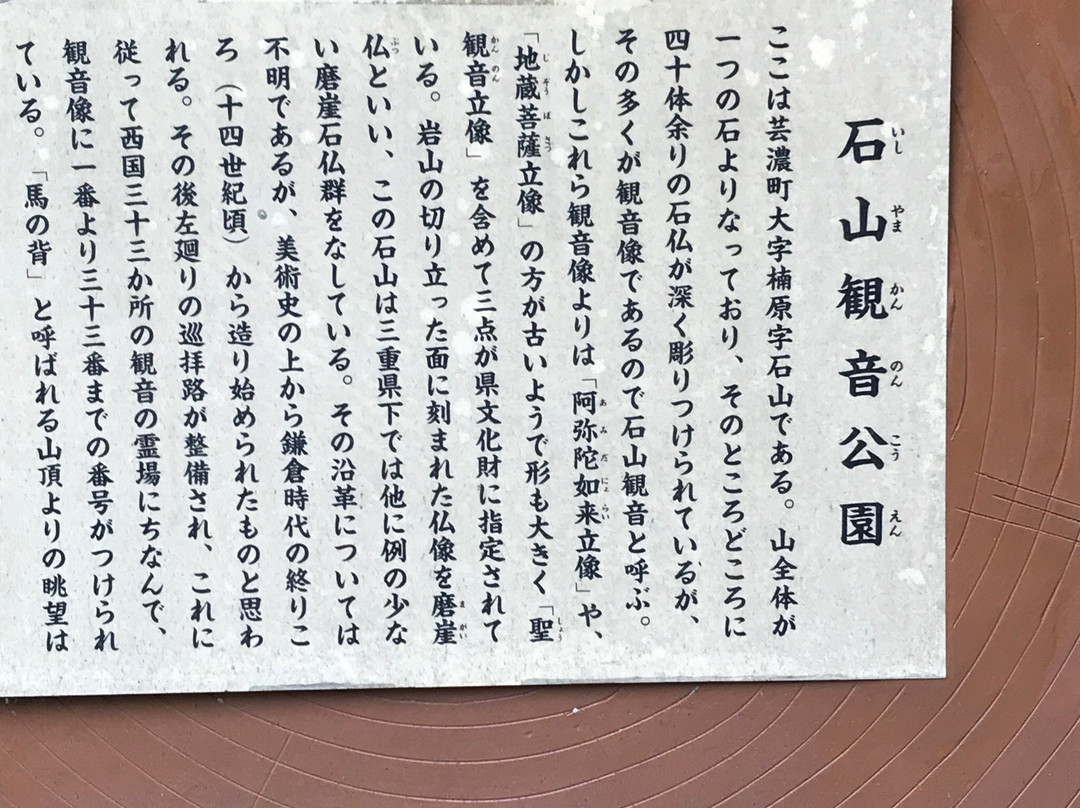 石山観音公園
ここは芸濃町大字楠原字石山である。山全体が
一つの石よりなっており、そのところどころに
四十体余りの石仏が深く彫りつけられているが、
その多くが観音像であるので石山観音と呼ぶ。
しかしこれら観音像よりは「阿弥陀如来立像」や、
「地蔵菩薩立像」の方が古いようで形も大きく「聖
観音立像」を含めて三点が県文化財に指定されて
いる。岩山の切り立った面に刻まれた仏像を磨崖
仏といい、この石山は三重県下では他に例の少な
い磨崖石仏群をなしている。その沿革については
不明であるが、美術史の上から鎌倉時代の終りこ
ろ（十四世紀頃）から造り始められたものと思わ
れる。その後左廻りの巡拝路が整備され、これに
従って西国三十三か所の観音の霊場にちなんで、
観音像に一番より三十三番までの番号がつけられ
ている。「馬の背」と呼ばれる山頂よりの眺望は